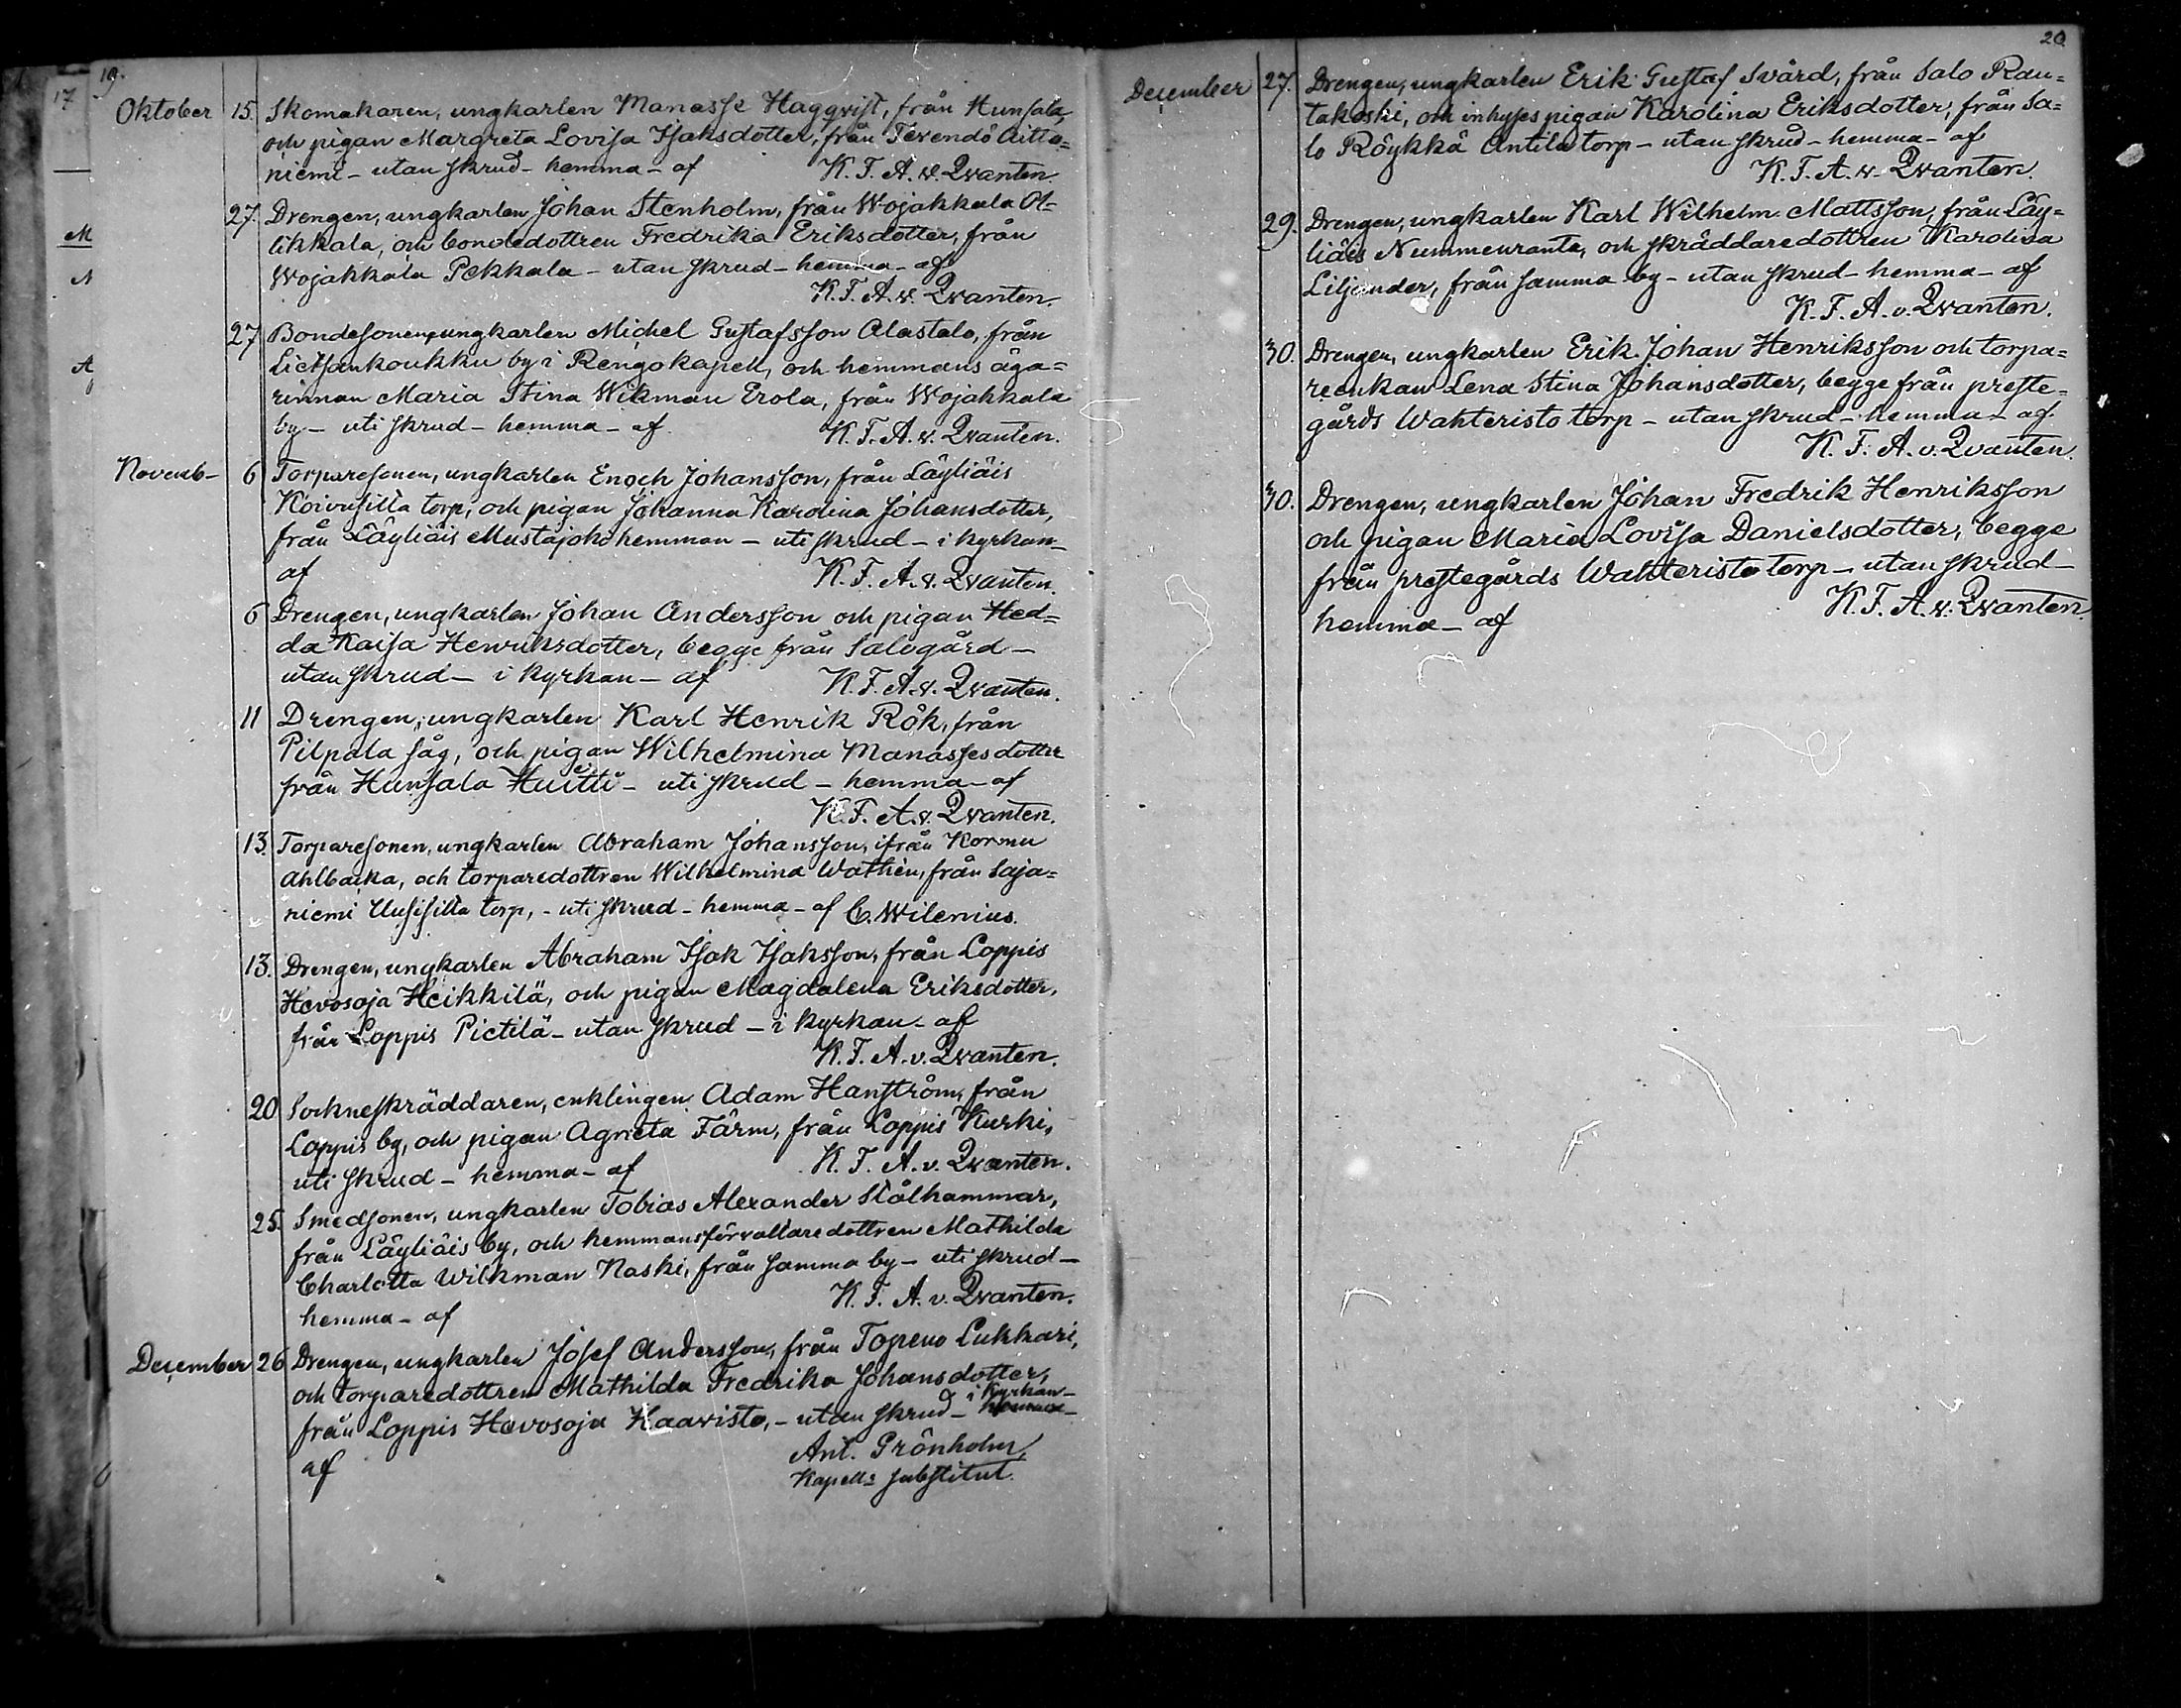 19.
17
Oktober 15. Skomakaren, ungkarlen Manasse Haggvist, från Hunsala,
och pigan Margreta Lovisa Isaksdotter, från Tevendö Aitta=
niemi – utan skrud – hemma – af K. F. A. v. Qvanten
27. Drengen, ungkarlen Johan Stenholm, från Wojakkala Ol=
likkala, och bondedottren Fredrika Eriksdotter, från
M
Wojakkala Pekkala – utan skrud – hemma – af
K. F. A. v. Qvanten.
27 Bondesonen, ungkarlen Michel Gustafsson Alastalo, från
Lietsankoukku by i Rengo kapell, och hemmans äga=
A
rinnan Maria Stina Wikman Erola, från Wojakkala
by – uti skrud – hemma – af K. F. A. v. Qvanten.
Novemb– 6 Torparesonen, ungkarlen Enoch Johansson, från Läyliäis
Koivusilla torp, och pigan Johanna Karolina Johansdotter,
från Läyliäis Mustajoki hemman – uti skrud – i kyrkan –
af K. F. A. v. Qvanten.
6 Drengen, ungkarlen Johan Andersson och pigan Hed=
da Kaisa Henriksdotter, begge från Salogård –
utan skrud – i kyrkan – af K. F. A. v. Qvanten.
11 Drengen, ungkarlen Karl Henrik Rök, från
Pilpala såg, och pigan Wilhelmina Manassesdotter
från Hunsala Huitti – uti skrud – hemma – af
K. F. A. v. Qvanten.
13. Torparesonen, ungkarlen Abraham Johansson, ifrån Kormu
Ahlbacka, och torparedottren Wilhelmina Wathén, från Saja=
niemi Uusisilla torp, – uti skrud – hemma – af C. Wilenius.
13. Drengen, ungkarlen Abraham Isak Isaksson, från Loppis
Hevosoja Heikkilä, och pigan Magdalena Eriksdotter,
från Loppis Pietilä – utan skrud – i kyrkan – af
K. F. A. v. Qvanten.
20 Sockneskräddaren, enklingen Adam Hanström, från
Loppis by, och pigan Agneta Färm, från Loppis Kurki,
uti skrud – hemma – af K. F. A. v. Qvanten.
25. Smedsonen, ungkarlen Tobias Alexander Stålhammar,
från Läyliäis by, och hemmansförvaltaredottren Mathilda
Charlotta Wilkman Naski, från samma by – uti skrud –
hemma – af K. F. A. v. Qvanten.
December 26 Drengen, ungkarlen Josef Andersson, från Topeno Lukkari,
och torparedottren Mathilda Fredrika Johansdotter,
i kyrkan –
från Loppis Hevosoja Haavisto, – utan skrud – hemma –
af Ant. Grönholm,
Kapells substitut.
20
December 27. Drengen, ungkarlen Erik Gustaf Svärd, från Salo Rau=
takoski, och inhyses pigan Karolina Eriksdotter, från Sa=
lo Röykkä Antila torp – utan skrud – hemma – af
K. F. A. v. Qvanten.
29. Drengen, ungkarlen Karl Wilhelm Mattsson, från Läy=
liäis Nummenranta, och skräddaredottren Karolina
Liljander, från samma by – utan skrud – hemma – af
K. F. A. v. Qvanten.
30. Drengen, ungkarlen Erik Johan Henriksson och torpa=
reenkan Lena Stina Johansdotter, begge från preste=
gårds Wahteristo torp – utan skrud – hemma – af
K. F. A. v. Qvanten.
30. Drengen, ungkarlen Johan Fredrik Henriksson
och pigan Maria Lovisa Danielsdotter, begge
från prestegårds Wahteristo torp – utan skrud –
hemma – af K. F. A. v. Qvanten.